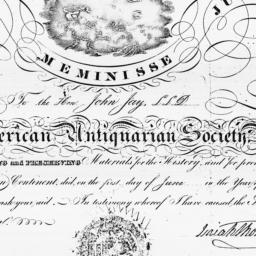 MEMINISSE
JU
To the Hon John Jay, LLD
erican Antiquarian Society,
NG AND PRESERVING Materials for the History, and for pro
n Continent, did, on the first day of June in the Year
ask your aid. In testimony whereof I have caused the
Isaiah Tho